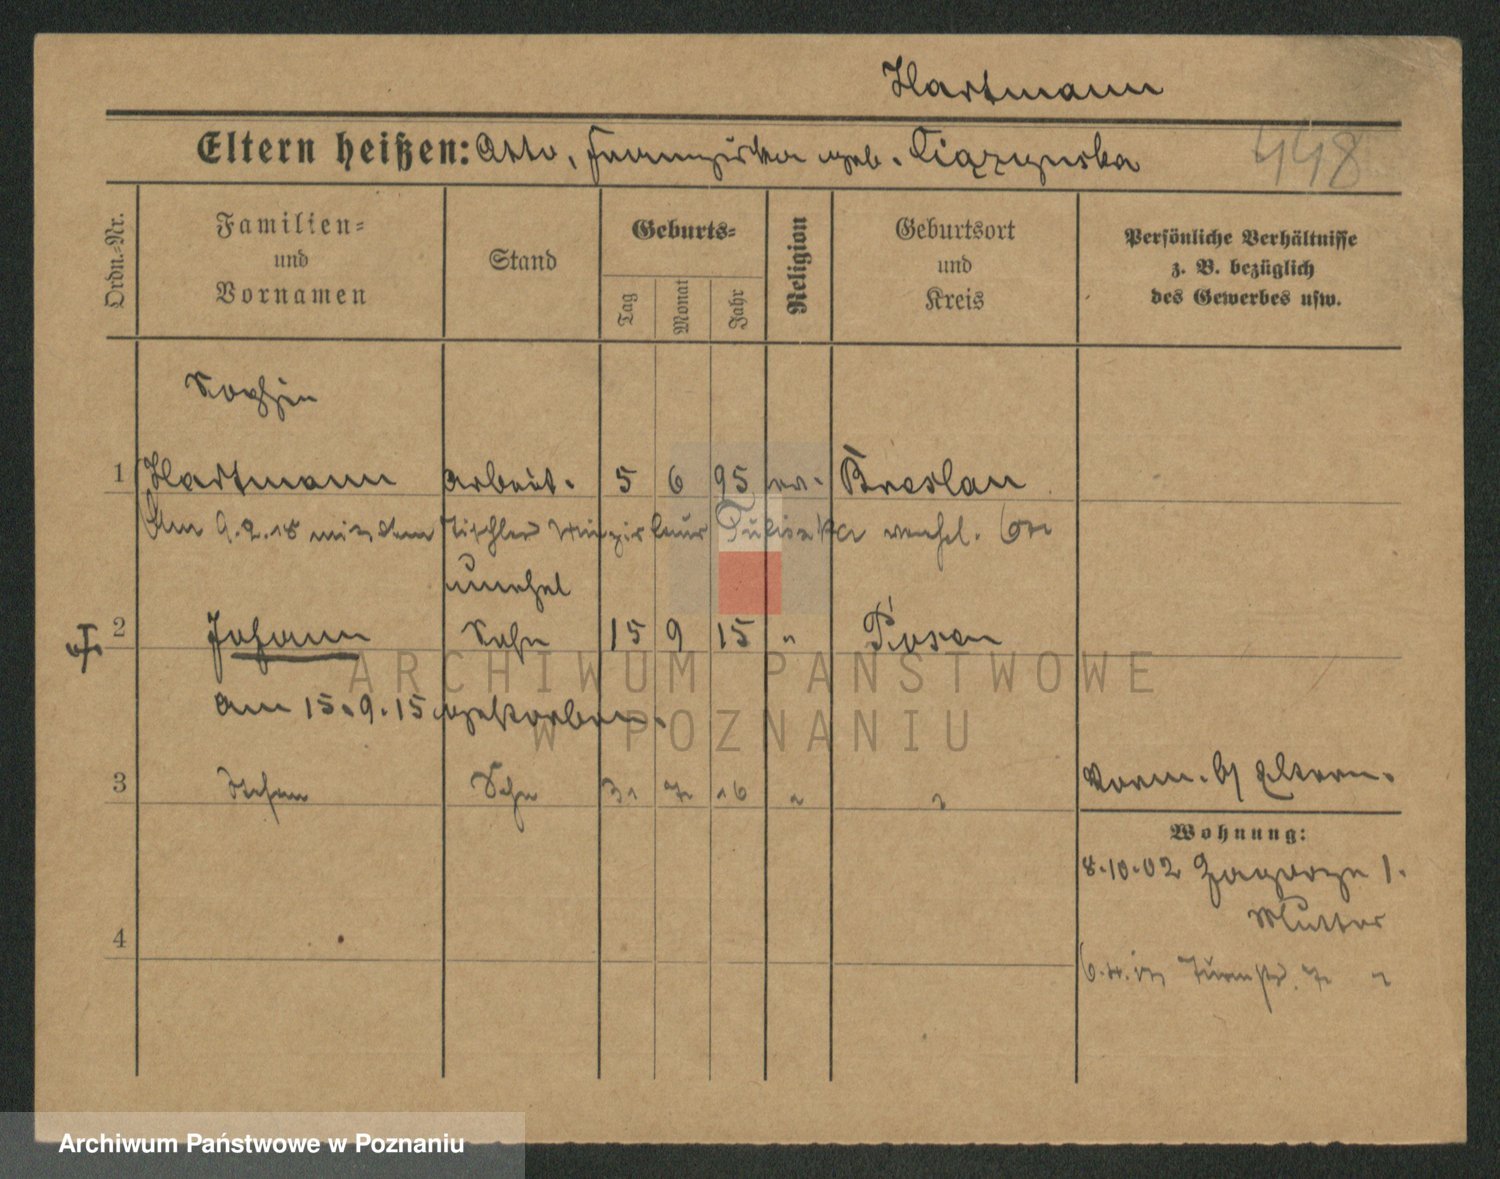 Hartmann
448
Eltern heißen: Otto, Franziska geb.
Ordn.-Nr.
Familien-
und
Vornamen
Stand
Geburts-
Tag
Monat
Jahr
Religion
Geburtsort
und
Kreis
Persönliche Verhältnisse
z. B. bezüglich
des Gewerbes usw.
Sophie
1 Hartmann Arbeit. 5 6 95 Breslau
Am 9.2.18 mit dem Tischler verehel.
unehel
2 Johann Sohn 15 9 15 " Posen
am 15.9.15 gestorben.
3 Sohn 31 7 16 " "
Vorm. Eltern.
Wohnung:
8.10.02 Zagorze 1.
Mutter
4
Turmstr. 7 "
ARCHIWUM PAŃSTWOWE
W POZNANIU
Archiwum Państwowe w Poznaniu